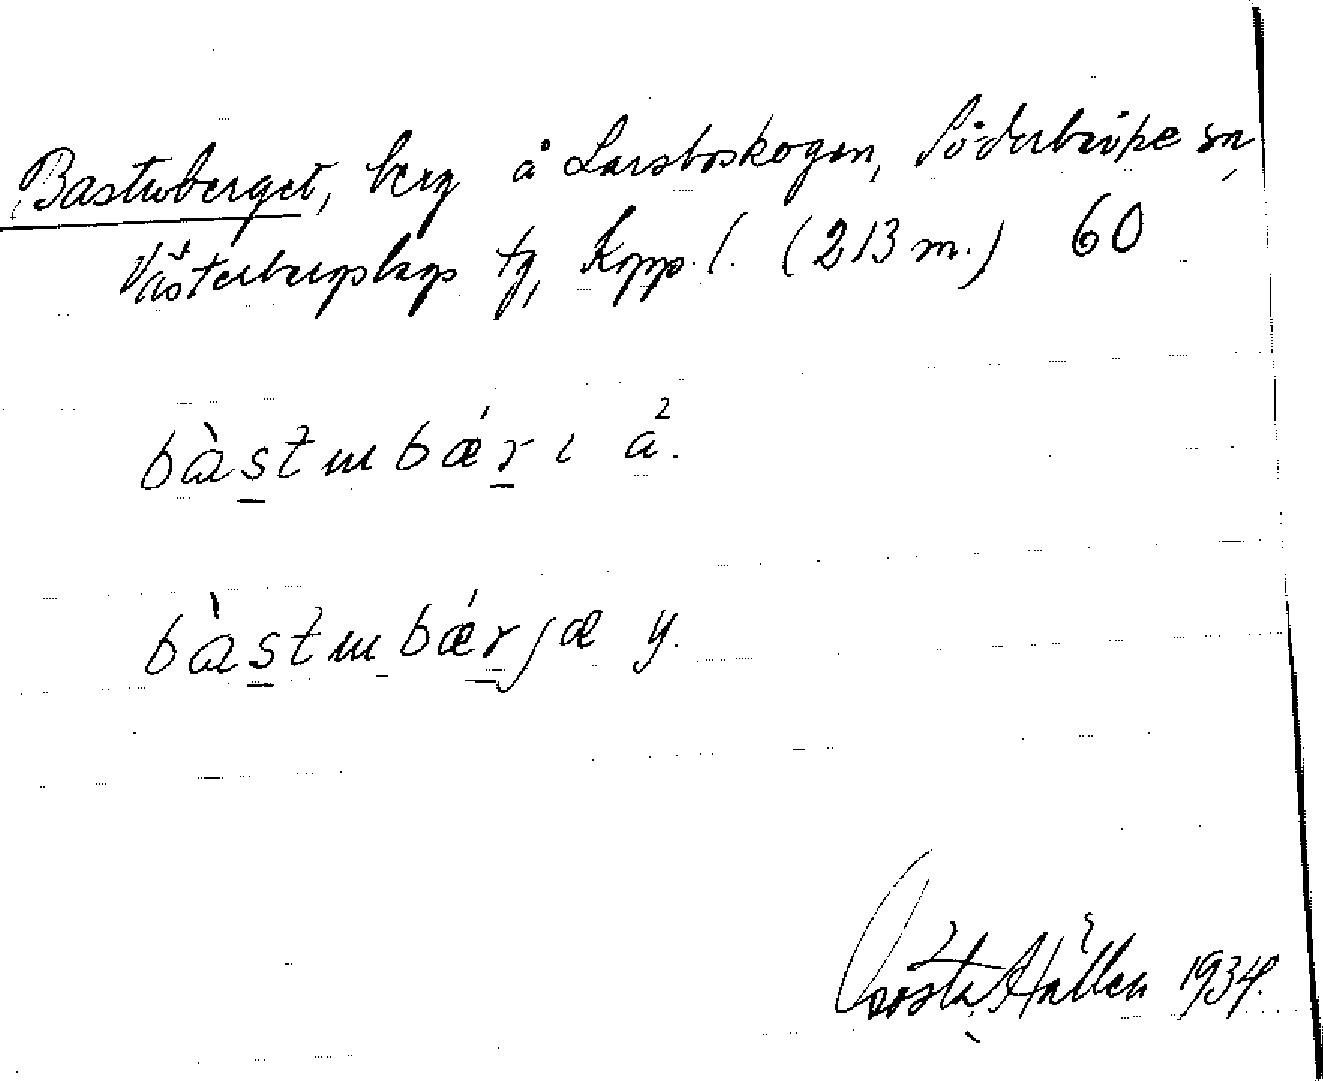 Bastuberget, berg å Larsboskogen, Söderbärke sn,
Västerbergslags tg, Kopp. l. (213 m.) 60
bàstɯbǽrɩ a².
bàstɯbǽrjæ y.
Gösta Hallen 1934.